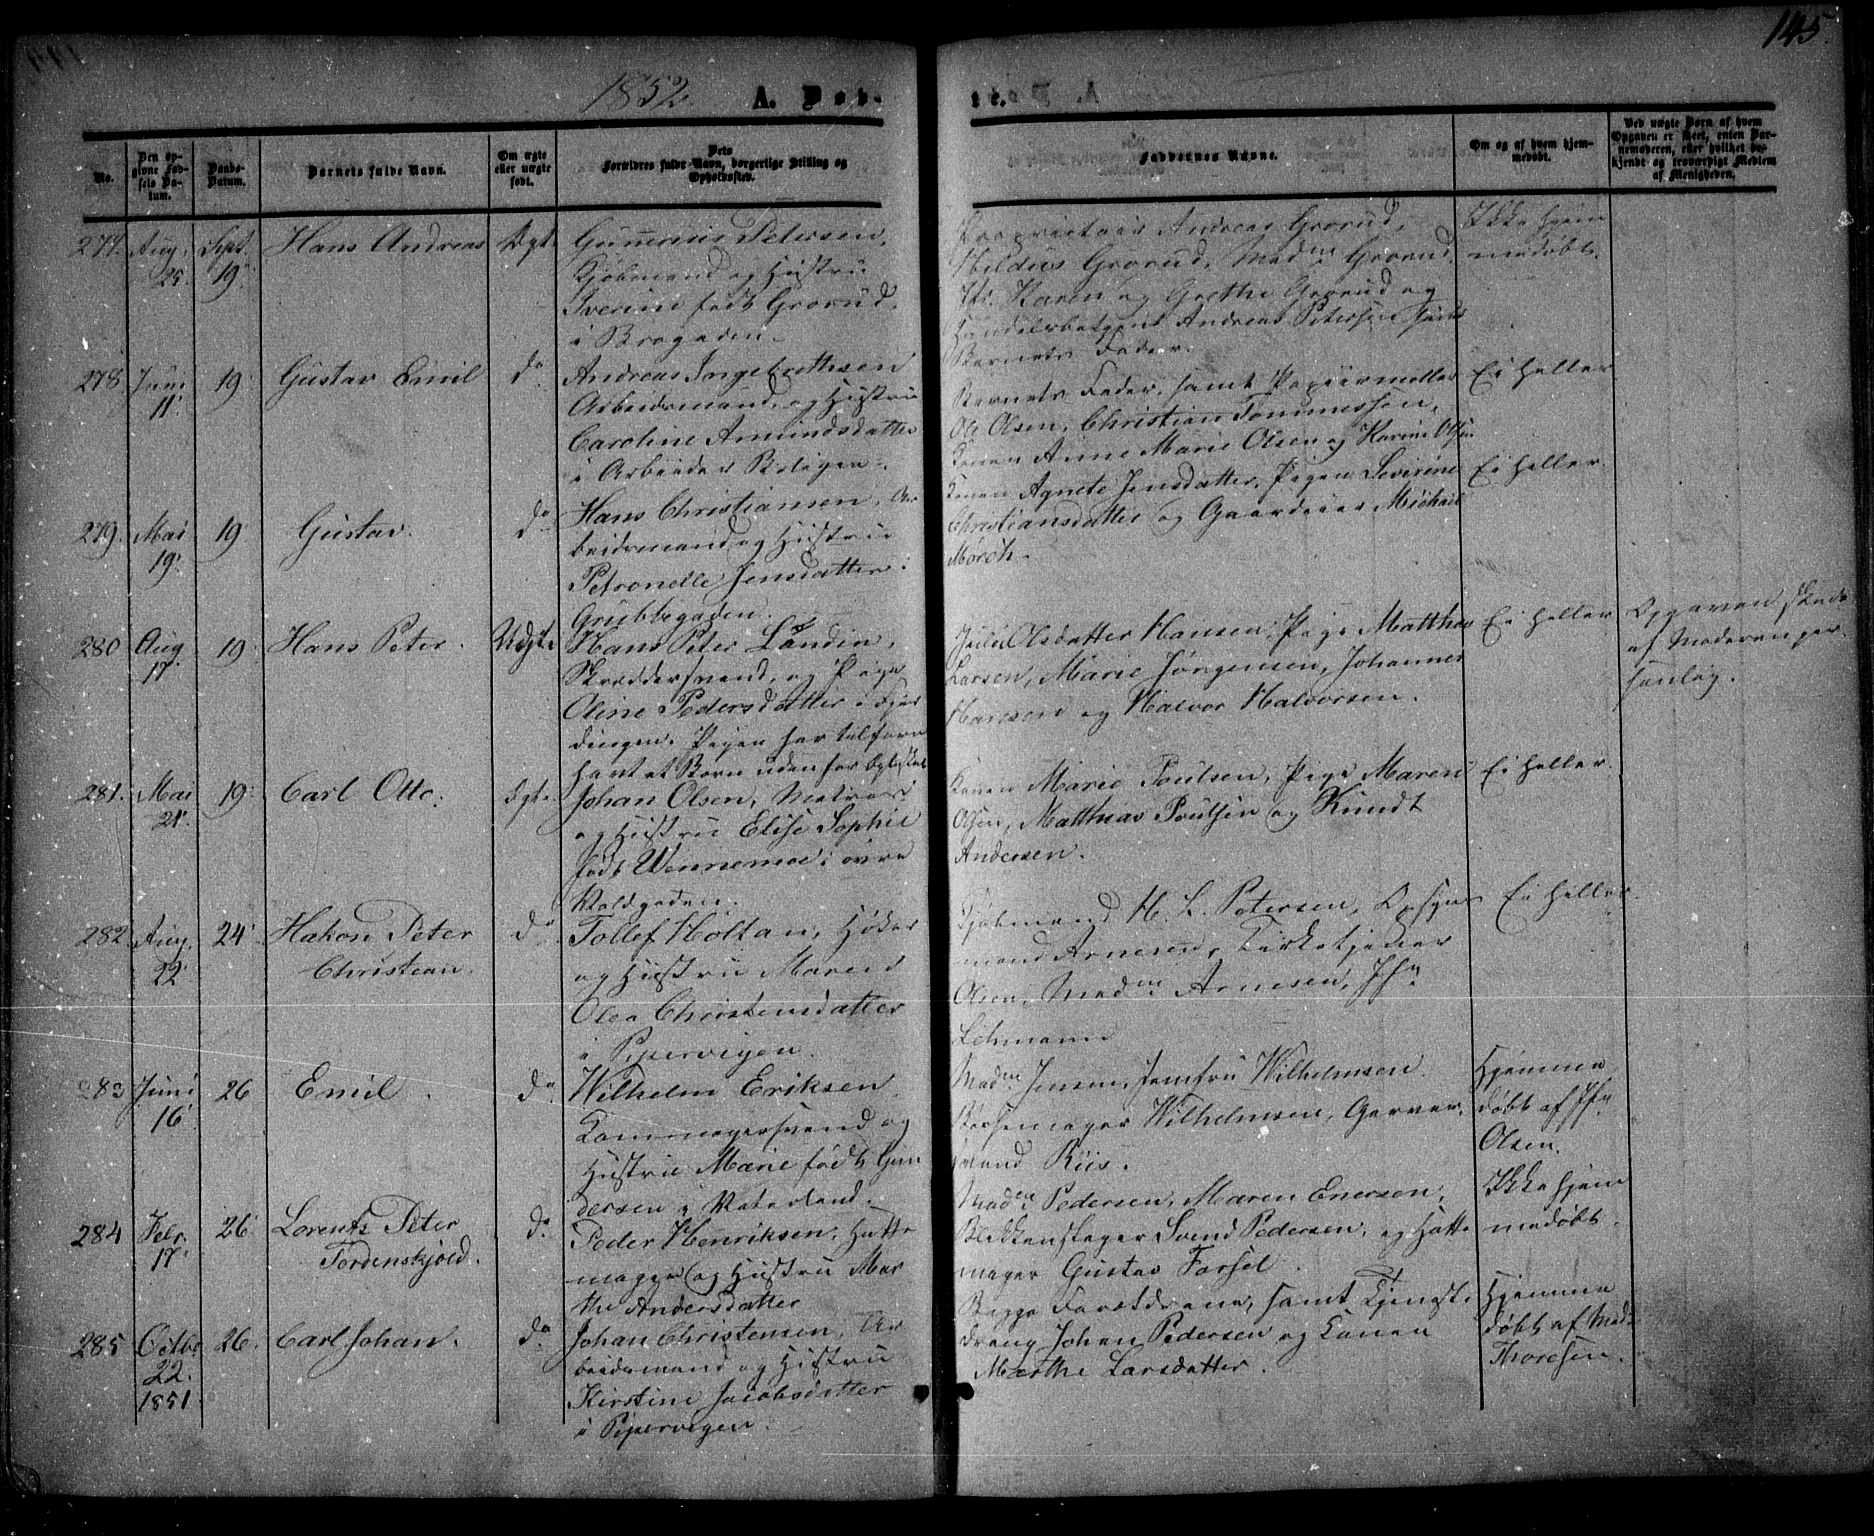 145.
1852. A. Døb-
te.
No.
Den op-
givne Fød-
sels Da-
tum.
Daabs-
Datum.
Barnets fulde Navn.
Om ægte
eller uægte
født.
Dets
Forældres fulde Navn, borgerlige Stilling og
Opholdssted.
Faddernes Navne.
Om og af hvem hjem-
medøbt.
Ved uægte Børn af hvem
Opgaven er skeet, enten Bar-
nemoderen, eller hvilket be-
kjendt og troværdigt Medlem
af Menigheden.
277. Aug. 25. Sept. 19. Hans Andreas Ægt.
Gunerius Petersen,
Kjøbmand og Hustru
Iverine født Grorud
i Brogaden.
Proprietair Andreas Grorud,
Hildus Grorud, Mad. Grorud,
Jfr. Karen og Grethe Grorud og
Handelsbetjent Andreas Petersen samt
Barnets Fader.
Ikke hjem
medøbt.
278. Juni 11. 19. Gustav Emil do.
Andreas Ingebrethsen
Arbeidsmand, og Hustru
Caroline Amundsdatter
i Arbeider Boligen.
Barnets Fader, samt Papiirmøller
Ole Olsen, Christian Tommessen,
Konen Anne Marie Olsen og Karine Olsen
Ei heller
279. Mai 19. 19. Gustav. do.
Hans Christiansen, Ar
beidsmand og Hustru
Petronelle Jensdatter i
Grubbegaden.
Konen Agnete Jensdatter, Pigen Severine
Christiansdatter og Gaardeier Michael
Mørch.
Ei heller.
280. Aug. 17. 19. Hans Peter. Uægt.
Hans Peter Lundin,
Skræddersvend, og Pige
Oline Pedersdatter i Fjer
dingen. Pigen har tilforn
havt et Barn udenfor Ægteskab
Olsdatter Hansen, Pige Matthea
Larsen, Marie Jørgensen, Johannes
Hansen og Halvor Halvorsen.
Ei heller
Opgaven skede
af Moderen per
sonlig.
281. Mai 21. 19. Carl Otto. Ægt.
Johan Olsen, Matros
og Hustru Elise Sophie
født Wennemoe i øvre
Voldgaden.
Konen Marie Poulsen, Pige Maren
Olsen, Matthias Poulsen og Knudt
Andersen.
Ei heller.
282. Aug. 22. 24. Hakon Peter
Christian. do.
Tollef Holtan, Høker
og Hustru Maren
Olea Christensdatter
i Pipervigen.
Kjøbmand H. L. Petersen, Opsyns
mand Arnesen, Kirketjener
Olsen, Mad. Arnesen, Jfr.
Lehmann
Ei heller.
283. Juni 16. 26. Emil. do.
Wilhelm Eriksen
Kammagersvend og
Hustru Marie født Gun
dersen i Vaterland.
Mad. Jensen, Jomfru Wilhelmsen.
Børsemager Wilhelmsen, Garver
svend Riis.
Hjemme
døbt af Jfr.
Olsen.
284. Febr. 17. 26. Lorents Peter
Tordenskjold. do.
Peder Henriksen, Hatte
mager og Hustru Mar
the Andersdatter
Mad. Pedersen, Maren Enersen,
Blikkenslager Svend Pedersen, og Hatte
mager Gustav Forsel.
Ikke hjem
medøbt.
285. Octbr. 22. 1851. 26. Carl Johan. do.
Johan Christensen, Ar
beidsmand og Hustru
Kirstine Jacobsdatter
i Pipervigen.
Begge Forældrene, samt Tjeneste
dreng Johan Pedersen og Konen
Marthe Larsdatter.
Hjemme
døbt af Mad.
Thoresen.